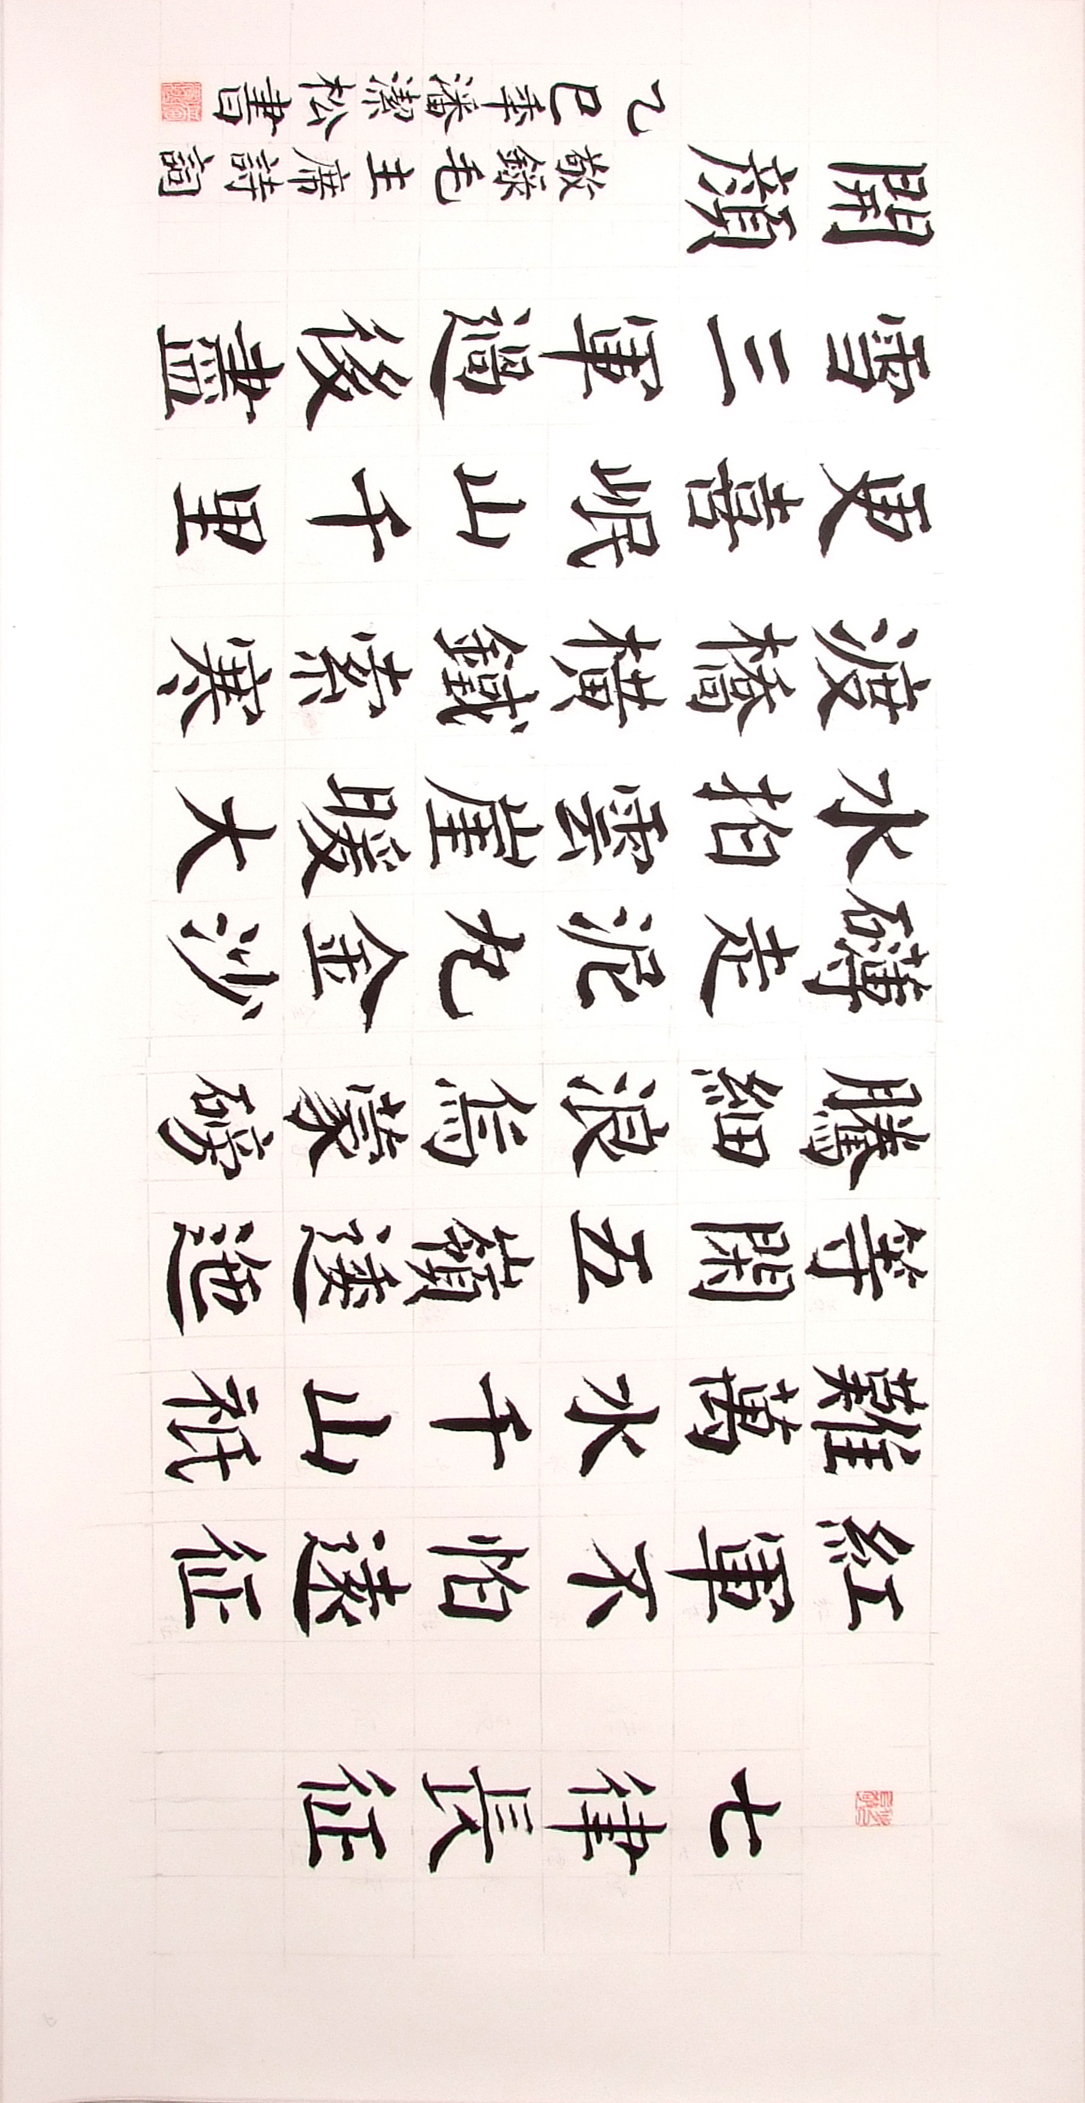 七律長征
紅軍不怕遠征
難萬水千山祇
等閑五嶺逶迤
騰細浪烏蒙磅
礴走泥丸金沙
水拍雲崖暖大
渡橋橫鐵索寒
更喜岷山千里
雪三軍過後盡
開顏
敬錄毛主席詩詞
乙巳年潘潔松書